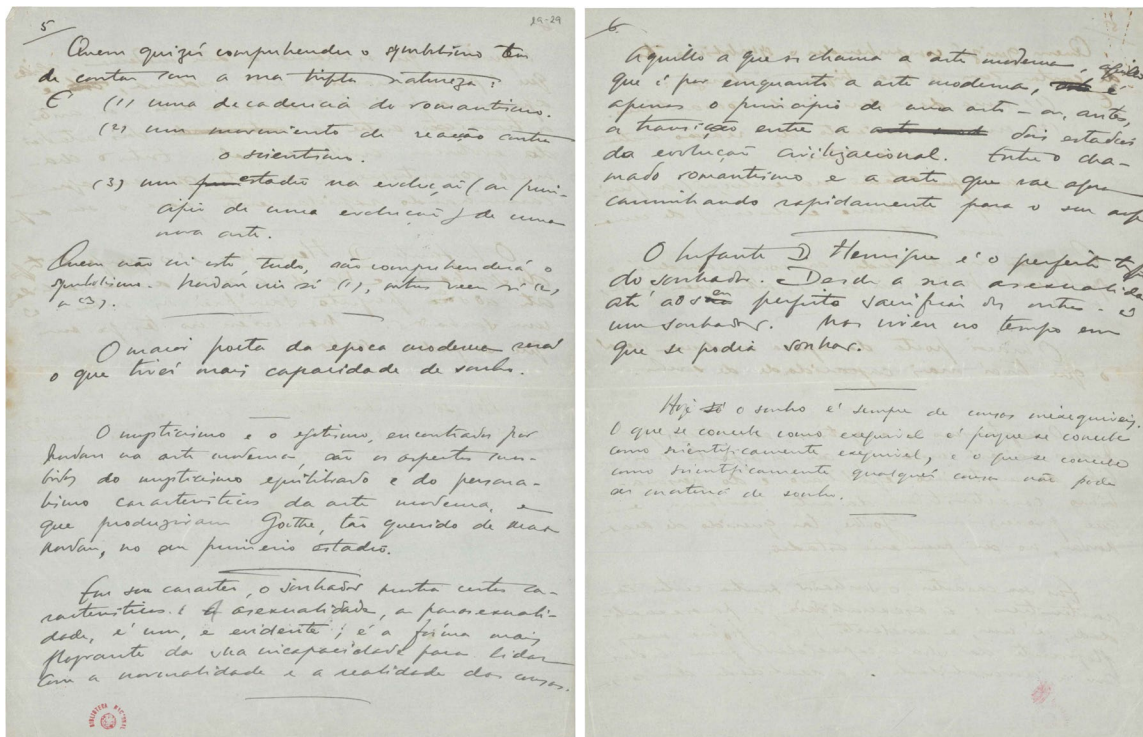 5
19-29
Quem quizér comprehender o symbolismo tem
de contar com a sua tripla natureza:
É (1) uma decadencia do romantismo.
(2) um movimento de reacção contra
o scientismo.
(3) um estadio na evolução (ou prin-
cipio de uma evolução) de uma
nova arte.
Quem não vir isto, tudo, não comprehenderá o
symbolismo. Nordau viu só (1), outros veem só (2)
a (3).
O maior poeta da epoca moderna será
o que tivér mais capacidade de sonho.
O mysticismo e o egotismo, encontrados por
Nordau na arte moderna, são os aspectos
do mysticismo equilibrado e do persona-
lismo caracteristicos da arte moderna, e
que produziram Goethe, tão querido de Max
Nordau, no seu primeiro estadio.
Em seu caracter, o sonhador mostra certas ca-
racteristicas: A asexualidade, a parasexuali-
dade, é um, é evidente; é a fórma mais
flagrante da sua incapacidade para lidar
com a normalidade e a realidade das cousas.
6.
Aquillo a que se chama a arte moderna, aquillo
que é por emquanto a arte moderna, é
apenas o principio de uma arte — ou, antes,
a transição entre dois estados
da evolução civilizacional. Entre o cha-
mado romantismo e a arte que vae agora
caminhando rapidamente para o seu
O Infante D Henrique é o perfeito typo
do sonhador. Desde a sua asexualidade
até ao perfeito sacrificio de outros - é
um sonhador. Mas viveu no tempo em
que se podia sonhar.
Hoje o sonho é sempre de cousas inexequiveis.
O que se concebe como exequivel é porque se concebe
como scientificamente exequivel, e o que se concebe
como scientificamente qualquér cousa não pode
ser materia de sonho.